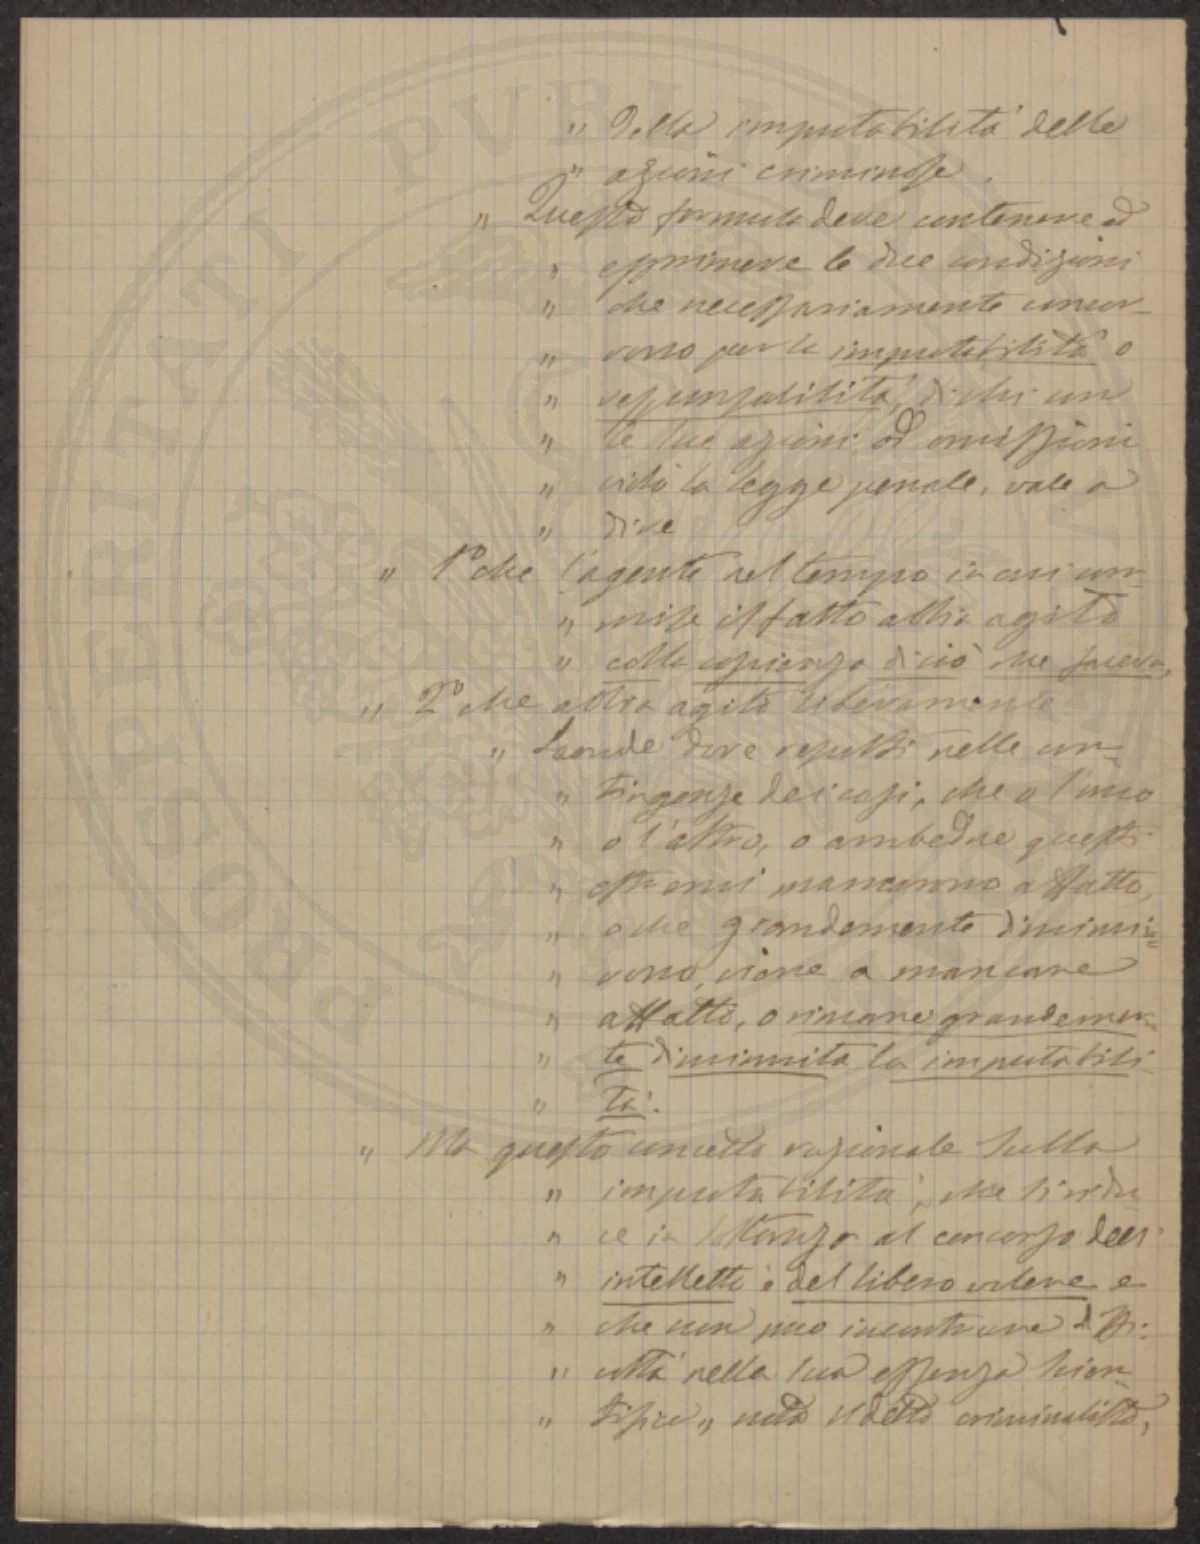 " Della imputabilità delle
" azioni criminose.
" Questa formula deve contenere ed
" esprimere le due condizioni
" che necessariamente concor-
" rono per la imputabilità o
" responsabilità, di chi con
" le sue azioni od omissioni
" viola la legge penale, vale a
" dire
" 1° che l'agente nel tempo in cui com-
" mise il fatto abbia agito
" colla coscienza di ciò che faceva,
" 2° che abbia agito liberamente
" Laonde dove risulti nelle con-
" tingenze dei casi, che o l'uno
" o l'altro, o ambedue questi
" estremi mancarono affatto,
" o che grandemente diminui-
" rono, viene a mancare
" affatto, o rimane grandemen-
" te diminuita la imputabili-
" tà.
" Ma questo concetto razionale sulla
" imputabilità, che si ridu-
" ce in sostanza al concorso dell'
" intelletto e del libero volere e
" che non può incontrare diffi-
" coltà nella sua essenza scien-
" tifica „ nota il detto criminalista,
PROSPERITATI PUBLICAE